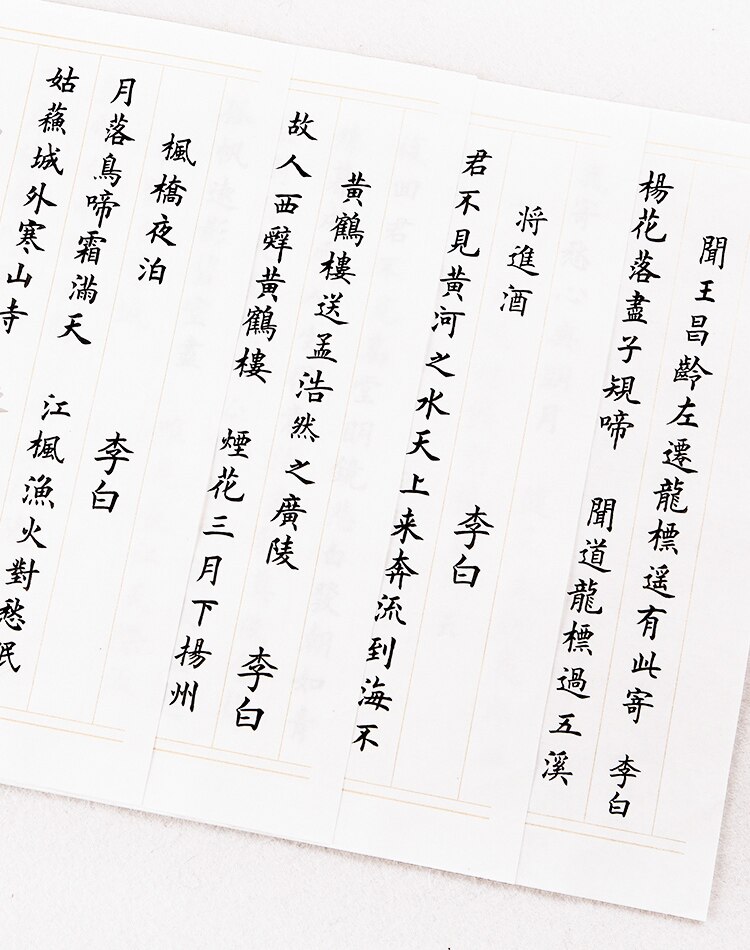 聞王昌齡左遷龍標遥有此寄 李白
楊花落盡子規啼 聞道龍標過五溪
将進酒 李白
君不見黄河之水天上来奔流到海不
黄鶴樓送孟浩然之廣陵 李白
故人西辭黄鶴樓 煙花三月下揚州
楓橋夜泊 李白
月落鳥啼霜滿天 江楓漁火對愁眠
姑蘓城外寒山寺